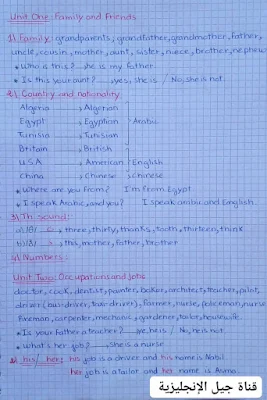 Unit One: Family and Friends
1) Family: grandparents, grandfather, grandmother, father,
uncle, cousin, mother, aunt, sister, niece, brother, nephew
• Who is this? she is my father
• Is this your aunt? yes, she is / No, she is not.
2) Country and nationality
Algeria → Algerian
Egypt → Egyptian Arabic
Tunisia → Tunisian
Britain → British
U.S.A → American English
China → Chinese Chinese
• Where are you from? I'm from Egypt
• I speak Arabic, and you? I speak arabic and English.
3) Th sound:
a) /θ/ three, thirty, thanks, tooth, thirteen, think
b) /ð/ this, mother, father, brother
4) Numbers
Unit Two: Occupations and jobs
doctor, cook, dentist, painter, baker, architect, teacher, pilot,
driver (bus driver, taxi driver), farmer, nurse, policeman, nurse
fireman, carpenter, mechanic, gardener, tailor, housewife.
• Is your father a teacher? ye, he is / No, he is not.
• What is her job? She is a nurse
his / her: his job is a driver and his name is Nabil
her job is a tailor and her name is Asma.
قناة جيل الإنجليزية